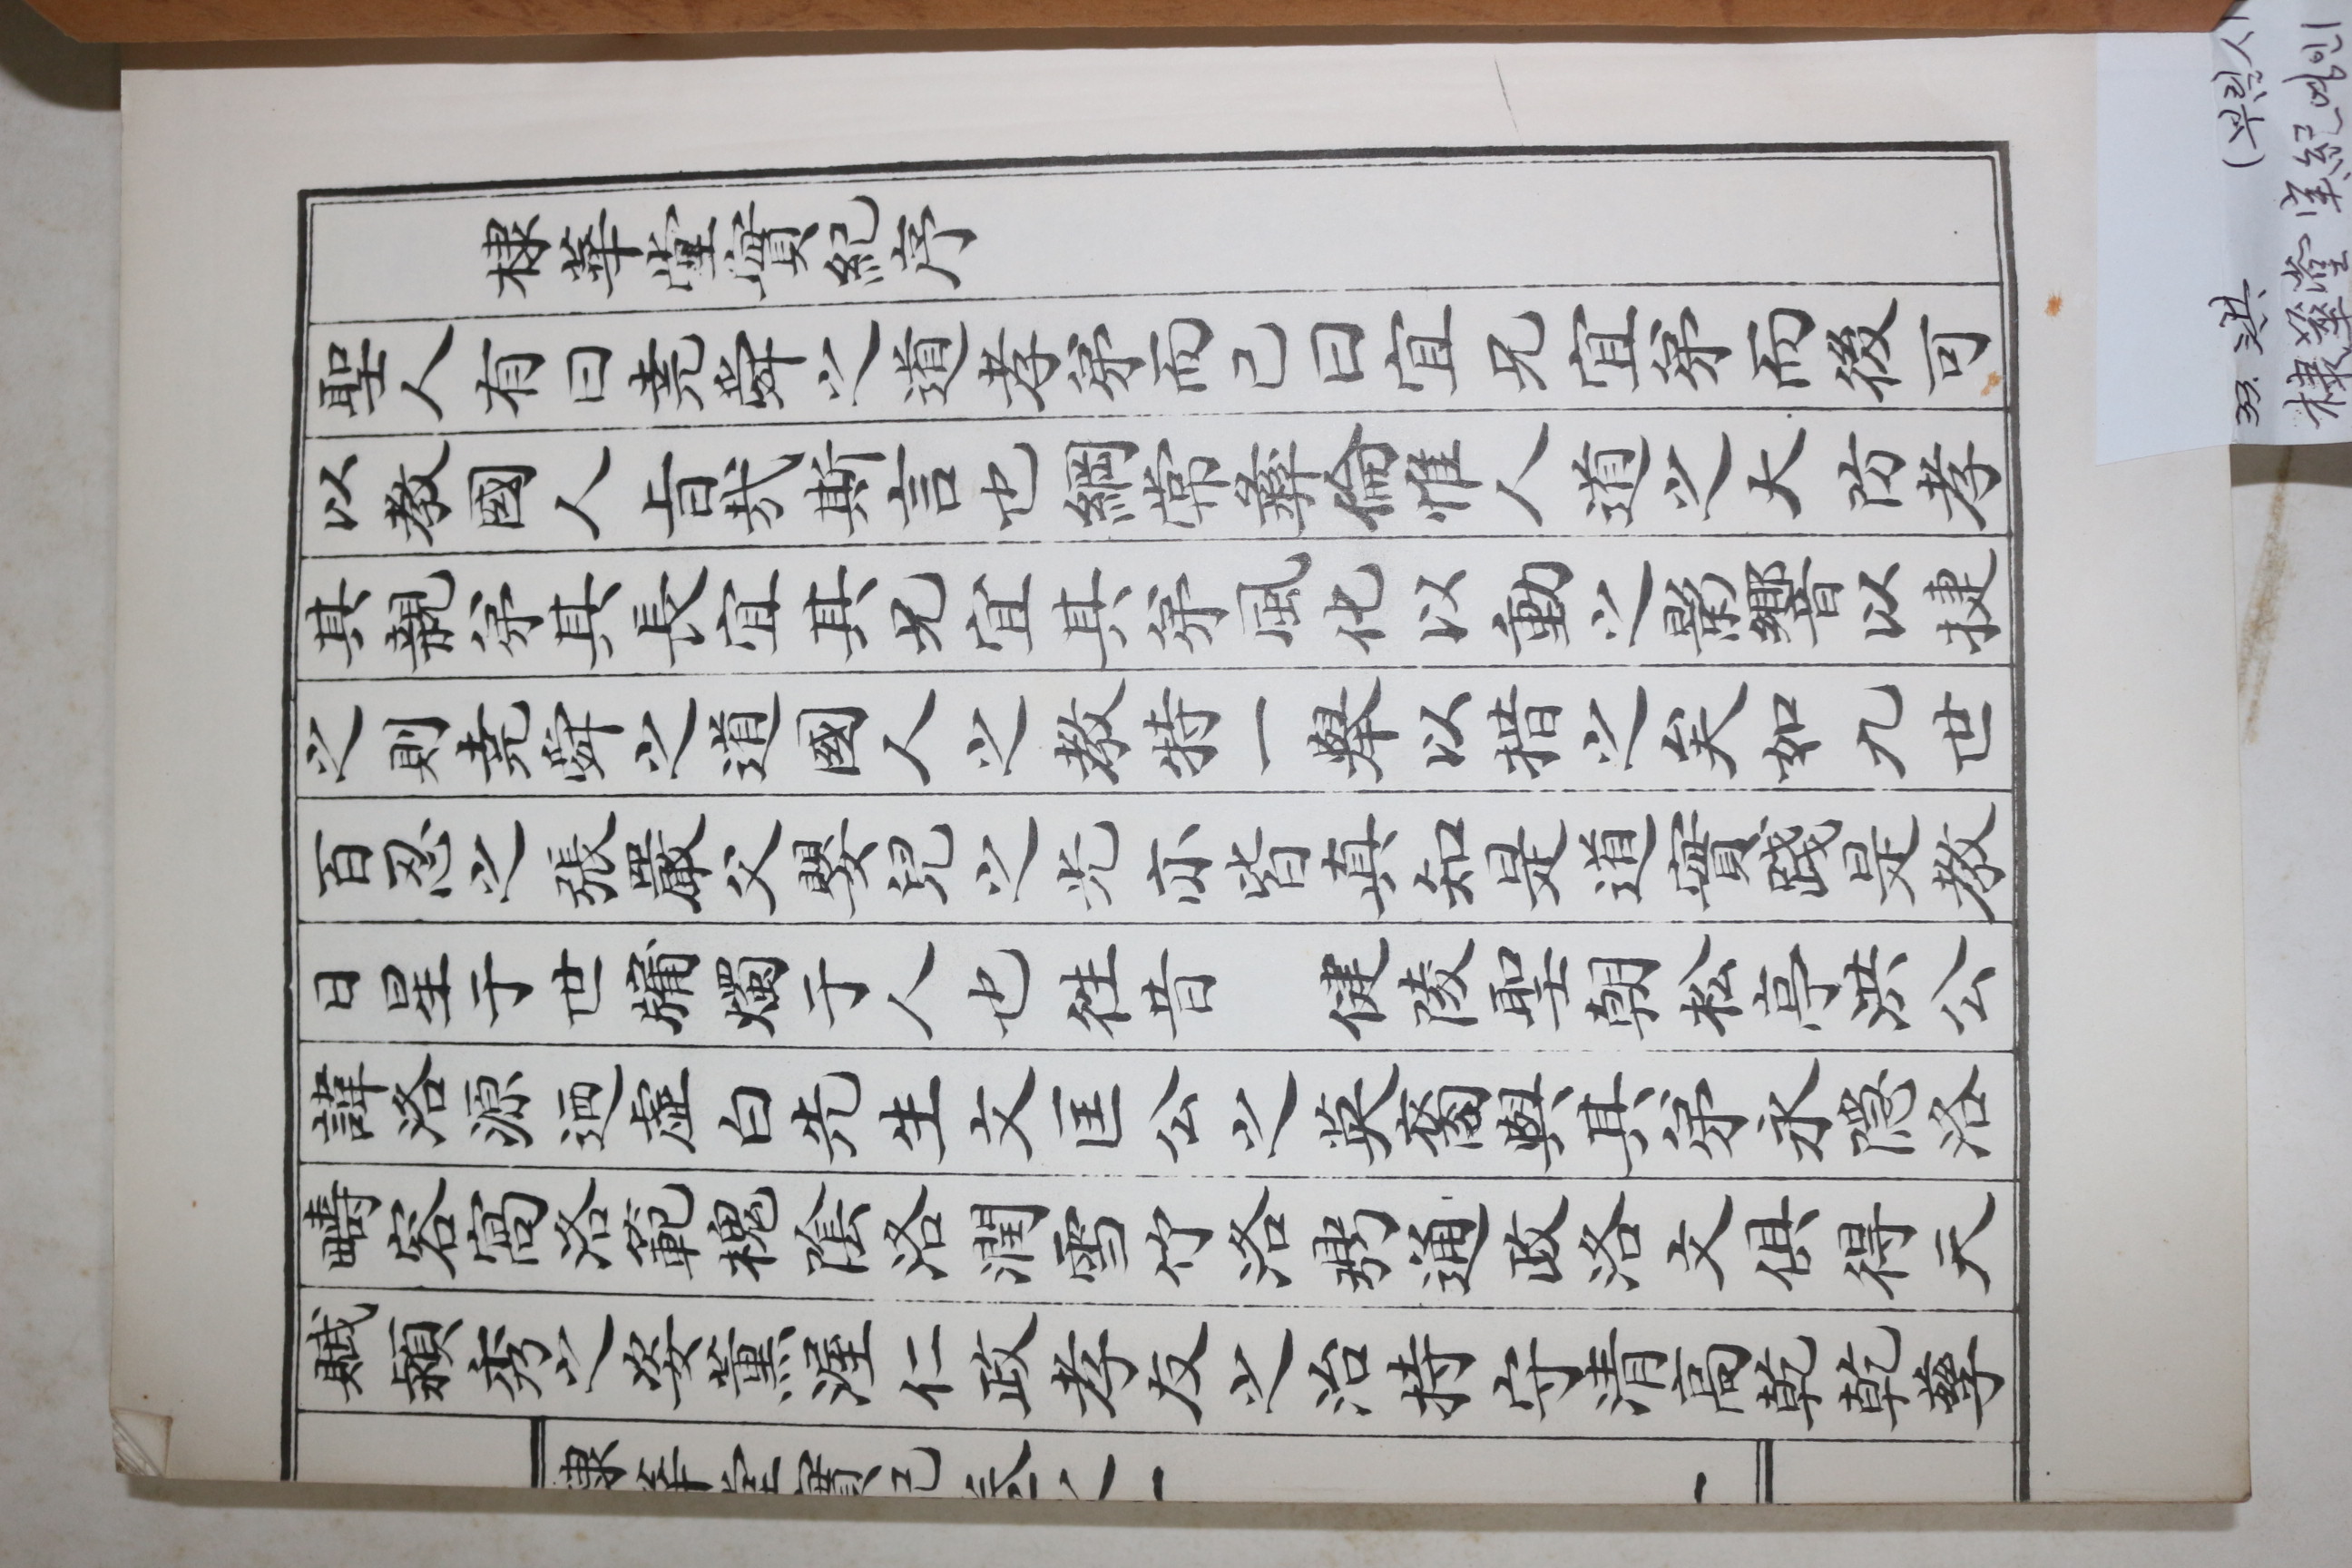 棣華堂實紀序
聖人有曰堯舜之道孝弟而已曰宜兄宜弟而後可
以教國人旨哉斯言也綱常彛倫惟人道之大防孝
其親弟其長宜其兄宜其弟風化以動之影響以捷
之則堯舜之道國人之教特一舉以措之矣如九世
百忍之張嚴父嬰兒之光亦皆真知是道實踐是教
日星于世牖燭于人也徃昔 健陵聖朝松亭洪公
諱洛源迺虛白先生文匡公之英裔與其弟永隱洛
疇容窩洛範槐陰洛潤雪竹洛鼎通政洛文俱得天
賦潁秀之姿薰渥仁政孝友之治持守清高乾乾孳
棣華堂實紀卷之一
一
33. 洪 (부림시
棣華堂 実紀 영인